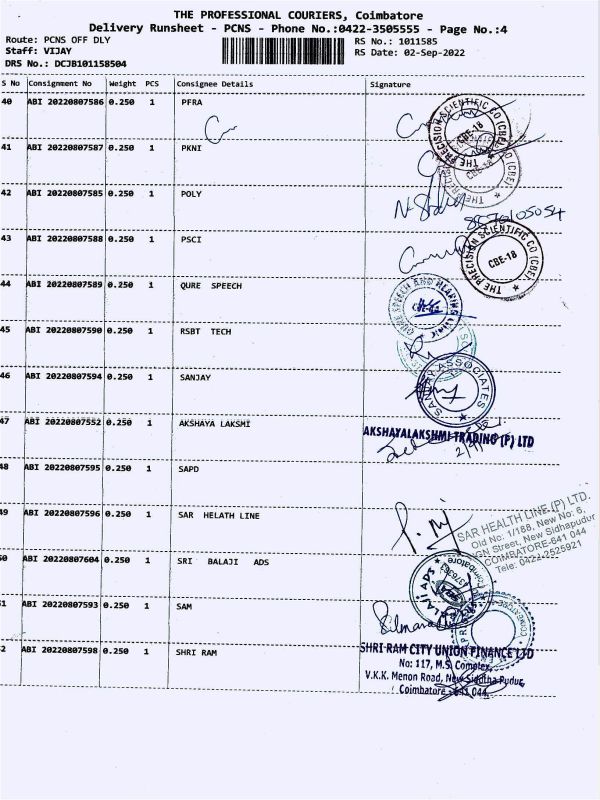 THE PROFESSIONAL COURIERS, Coimbatore
Delivery Runsheet - PCNS - Phone No.:0422-3505555 - Page No.:4
Route: PCNS OFF DLY
RS No.: 1011585
Staff: VIJAY
RS Date: 02-Sep-2022
DRS No.: DCJB101158504
S No Consignment No Weight PCS Consignee Details Signature
40 ABI 20220807586 0.250 1 PFRA
THE PRECISION SCIENTIFIC CO (CBE)
CBE-18
41 ABI 20220807587 0.250 1 PKNI
CBE-18
42 ABI 20220807585 0.250 1 POLY
43 ABI 20220807588 0.250 1 PSCI
THE PRECISION SCIENTIFIC CO (CBE)
CBE-18
44 ABI 20220807589 0.250 1 QURE SPEECH
QURE SPEECH AND HEARING CLINIC
45 ABI 20220807590 0.250 1 RSBT TECH
46 ABI 20220807594 0.250 1 SANJAY
SANJAY ASSOCIATES
47 ABI 20220807552 0.250 1 AKSHAYA LAKSMI
AKSHAYALAKSHMI TRADING (P) LTD
48 ABI 20220807595 0.250 1 SAPD
49 ABI 20220807596 0.250 1 SAR HELATH LINE
SAR HEALTH LINE (P) LTD.
Old No: 1/188, New No: 6,
VGN Street, New Sidhapudur
COIMBATORE-641 044
Tele: 0422-2525921
50 ABI 20220807604 0.250 1 SRI BALAJI ADS
51 ABI 20220807593 0.250 1 SAM
52 ABI 20220807598 0.250 1 SHRI RAM
SHRI RAM CITY UNION FINANCE LTD
No: 117, M.S. Complex,
V.K.K. Menon Road, New Siddha Pudur,
Coimbatore - 641 044.